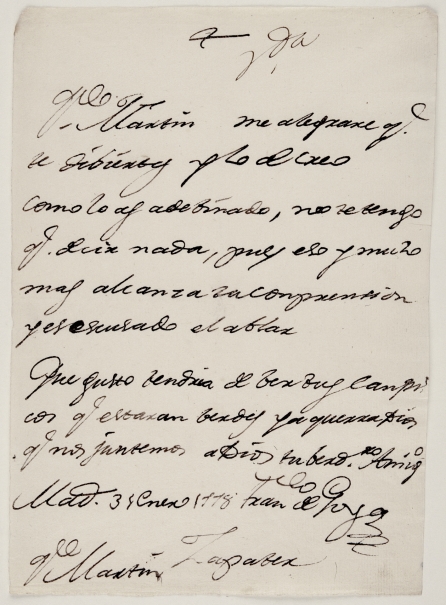 Qdo. Martin me alegrare q.e
te dibiertas y lo de creo
como lo as adebinado, no te tengo
q. decir nada, pues eso y mucho
mas alcanza tu conprension
y es escusado el ablar
Que gusto tendria de ber tus canpi
cos q. estaran berdes ya querra Dios
q. nos juntemos a Dios tu berd.ro Amigo
Mad. 3 Enero 1778 Fran.co de Goya
Qdo. Martin Zapater